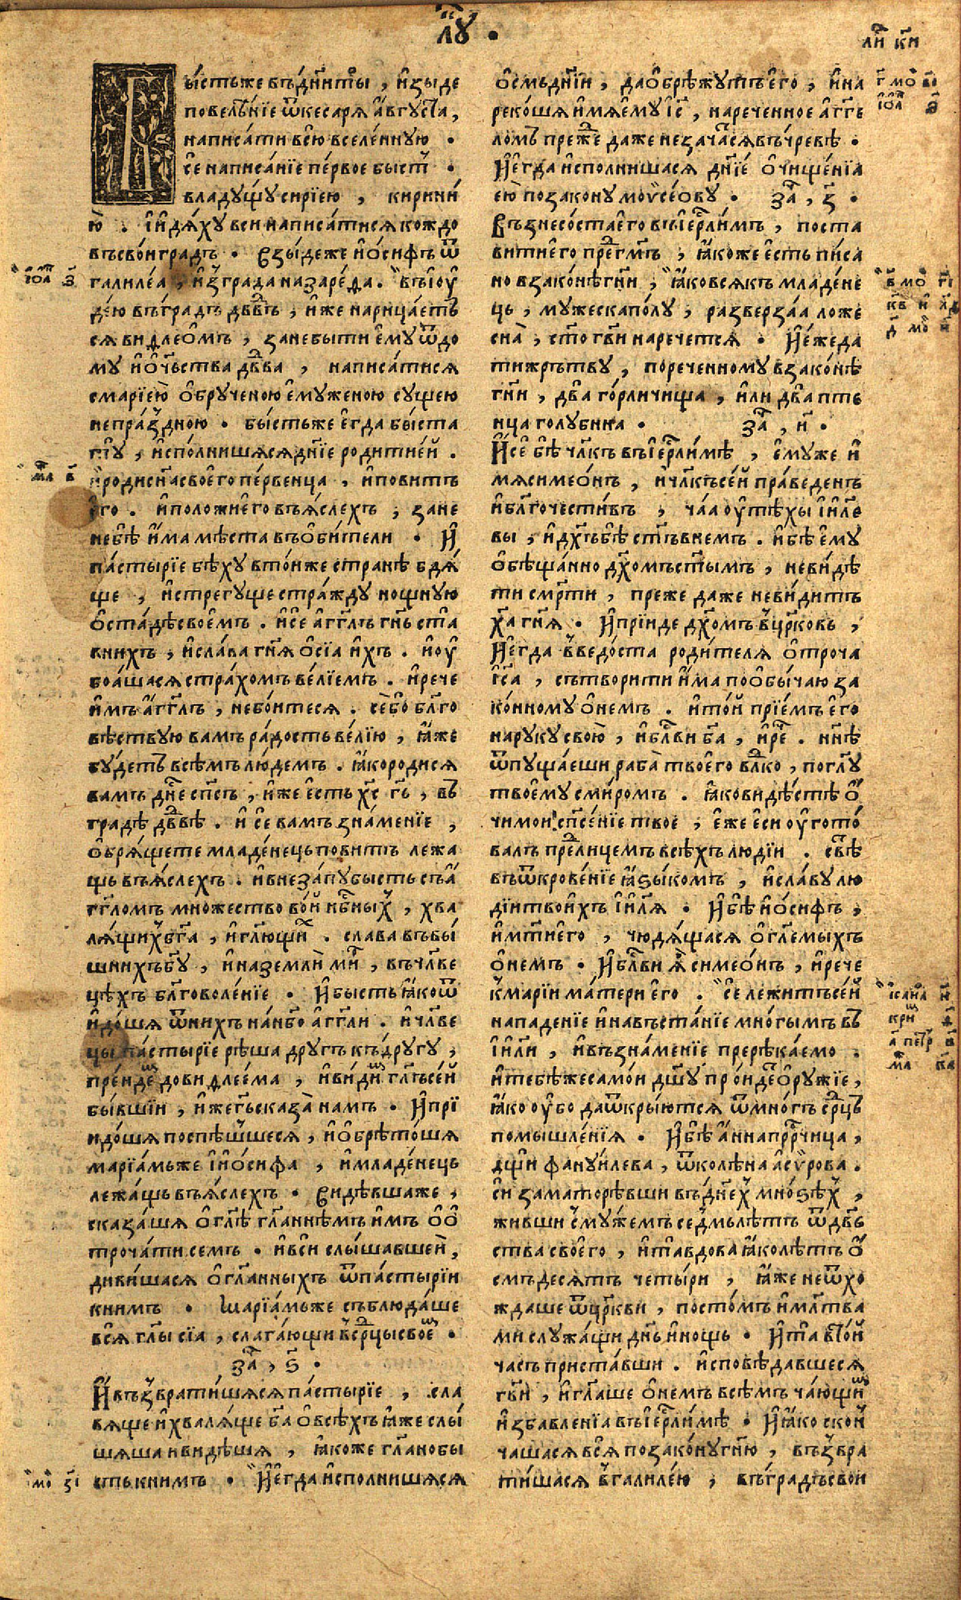 лꙋ •
ли҃ к҃и
Бы́стьже въдн҃итыѧ , и҆зыде
повелѣ́нїе ѿкесарѧ а҆́вгꙋста ,
написа́ти всю̀ вселе́ннꙋю •
се́ написа́нїе пе́рвое бысть •
владꙋ́щꙋ сирїею , кирини́
ю̀ . и҆и҆дѧ́хꙋ вси написа́тисѧ кождо
въсвои́ градъ • Взы́деже и҆ѻ́сифъ ѿ
галиле́а , и҆з̾града назаре́да . въї҆ю҆
де́ю въгра́дъ дв҃въ , и҆́же нарица́етъ
сѧ виѳлео́мъ , зане́бы́ти е҆мꙋ̀ ѿдо
мꙋ и҆ѻ҆те́чьства дв҃ва , написа́тисѧ
смарїе́ю ѻ҆брꙋ́ченою е҆мꙋ́женою сꙋ́щею
непра́здною • бы́стьже е҆гда̀ бы́ста
тꙋ̀ , и҆спо́лнишасѧ дн҃їе роди́тие́й .
и҆родисн҃асвоего̀ пе́рвенца , и҆пови́тъ
е҆го̀ . и҆положиѐго въꙗ́слехъ , занѐ
небѣ̀ и҆́ма мѣ́ста въѻби́тели • И҆
па́стырїе бѣ́хꙋ вто́и́же странѣ̀ бдѧ́
ще , и҆стрегꙋ́ще стра́жꙋ нощнꙋ́ю
ѻ҆ста́дѣ свое́мъ . и҆сѐ а҆́гг҃лъ гн҃ь ста̀
вни́хъ , и҆сла́ва гн҃ѧ ѻ҆сїѧ̀ и҆́хъ . и҆оу҆
боѧ́шасѧ стра́хомъ ве́лїемъ . и҆рече
и҆́мъ а҆́гг҃лъ , небо́итесѧ . се́бо бл҃го
вѣствꙋю ва́мъ ра́дость ве́лїю , ꙗ҆́же
бꙋ́детъ всѣ́мъ лю́демъ . ꙗ҆́кородисѧ
ва́мъ дн҃е сп҃съ , и҆́же е҆́сть хс҃ гь҃ , въ
гра́дѣ дв҃вѣ . и҆ се́ ва́мъ зна́менїе ,
ѻ҆брѧ́щете младе́нець пови́тъ лежа
щь въꙗ́слехъ . и҆внеза́пꙋ бы́сть съа҆́
гг҃ломъ мно́жество во́й нбⷭ҇ны́хъ , хва
лѧ́щи́хъ бг҃а , и҆гл҃ющи́хъ . сла́ва въвы́
шнихъ бг҃ꙋ , и҆наземлѝ ми́ръ , въчл҃ве
цѣ́хъ бл҃говоле́нїе • И҆бы́сть ꙗ҆́коѿ
и҆до́шѧ ѿни́хъ нан҃бо а҆́гг҃ли . и҆чл҃ве
цы па́стырїе рѣ́ша дрꙋ́гъ къдрꙋ́гꙋ ,
пре́идемъ довиѳлее́ма , и҆ви́димъ гл҃ъсе́й
бы́вшїи , и҆́жегь҃сказа̀ на́мъ • И҆прї
идо́шѧ поспѣ́шьшесѧ , и҆ѻбрѣто́шѧ
марїа́мьже и҆и҆ѻ́сифа , и҆младе́нець
лежа́щь въꙗ́слехъ • Ви́дѣвшаже ,
сказа́шѧ ѻ҆гл҃ѣ гл҃аннѣмъ и҆́мъ ѻ҆ѻ
троча́ти се́мъ • и҆всѝ слы́шавшеи̑ ,
диви́шасѧ ѻ҆гл҃анныхъ ѿпа́стырїи
кни́мъ • Марїа́мьже съблюда́ше
всѧ̀ гл҃ы сїѧ̀ , слага́ющи в̾срⷣцы свое́мъ •
за҃ , ѕ҃ •
И҆въз̾врати́шѧсѧ па́стырїе , сла
вѧще и҆хвалѧ́ще бг҃а ѻ҆всѣ́хъ ꙗ҆́же слы́
шѧша и҆ви́дѣшѧ , ꙗ҆́коже гл҃анобы́
сть кни́мъ • И҆е҆гда̀ и҆спо́лнишѧсѧ
ї҆ѻⷩ҇ з҃
мⷴ҇ а҃ в҃
мо зі҃
ѻ҆смьдн҃їи , даѻбрѣ́жꙋтъ е҆го̀ , и҆на
реко́ша и҆́мѧ е҆мꙋ̀ іс҃ , нарече́нное а҆́гг҃е
ломъ пре́же да́же незача́сѧ въчре́вѣ •
И҆е҆гда̀ и҆спо́лнишасѧ дн҃їе ѻ҆чище́нїѧ
е҆ю̀ позако́нꙋ мо́ѵсеовꙋ • за҃ , з҃ •
Възнесо́стаего въі҆ерⷭ҇ли́мъ , поста́
витиѐго пред̾гмь҃ , ꙗ҆́коже е҆́сть пи́са
но взако́нѣ гн҃и , ꙗ҆́ко всѧ́къ младе́не
ць , мꙋ́жескапо́лꙋ , разверза́ѧ ложе
сна̀ , ст҃о гв҃и нарече́тсѧ • И҆е҆́жеда
тижрътвꙋ , порече́нномꙋ взако́нѣ
гн҃и , два̀ го́рличища , и҆́ли два̀ пте
нца голꙋби́на • за҃ , и҃ •
И҆сѐ бѣ̀ чл҃къ въі҆ерⷭ҇ли́мѣ , е҆мꙋ́же и҆́
мѧ симео́нъ , и҆чл҃късе́й пра́веденъ
и҆бл҃гочести́въ , ча́ѧ оу҆тѣ́хы і҆и҃ле
вы , и҆дх҃ъбѣ̀ ст҃ъвне́мъ . и҆бѣ̀ е҆мꙋ̀
ѻ҆бѣща́нно дх҃омъст҃ымъ , неви́дѣ
ти сме́рти , пре́же да́же неви́дитъ
хⷭ҇а гн҃ѧ • И҆прїи́де дх҃омъ в̾це́рковь ,
И҆е҆гда̀ в̾ведо́ста роди́телѧ ѻ҆троча̀
іс҃а , сътвори́ти и҆́ма поѻбы́чаю за
ко́нномꙋ ѻ҆не́мъ . и҆то́й прїе́мъ е҆го̀
нарꙋ́кꙋ своє́ю , и҆бл҃ви бг҃а , и҆речѐ . нн҃ѣ
ѿпꙋща́еши раба̀ твоего̀ влⷣко , погл҃ꙋ
твоемꙋ̀ сми́ромъ . ꙗ҆́ковидѣ́стѣ ѻ҆́
чимоѝ сп҃се́нїе твоѐ , е҆́же е҆сѝ оу҆гото́
валъ предлице́мъ всѣ́хъ лю́дїи . свѣ́тъ
въѿкрове́нїе ꙗ҆зы́комъ , и҆сла́вꙋ лю
ді́и твои́хъ і҆и҃лѧ • И҆бѣ̀ и҆ѻ́сифъ ,
и҆мт҃иего̀ , чюдѧ́щасѧ ѻ҆гл҃емыхъ
ѻ҆не́мъ • И҆бл҃ви ѧ҆̀ симео́нъ , и҆речѐ
к̾марі́и ма́тери е҆го̀ . Се́ лежи́тъсе́й
нападе́нїе и҆навъста́нїе мно́гымъ въ
і҆и҃ли , и҆възна́менїе прерѣка́емо .
и҆тебѣ́жесамо́и дш҃ꙋ про́йдетъ ѻ҆рꙋ́жїе ,
ꙗ҆́ко оу҆́бо даѿкры́ютсѧ ѿмно́гъ срⷣцъ
помышле́нїѧ • И҆бѣ̀ а҆́нна прⷪ҇рчица ,
дщѝ фанꙋи́лева , ѿколѣ́на а҆си́рова .
сѝ заматорѣ́вши въдне́хъ мно́ѕѣхъ ,
жи́вши с̾мꙋ́жемъ се́дмьлѣ́тъ ѿдѣ́в
ства своего̀ , и҆та̀вдова̀ ꙗ҆́колѣ́тъ ѻ҆́
смъдесѧтъ четы́ри , ꙗ҆́же неѿхо
жда́ше ѿце́ркви , посто́мъ и҆мл҃тва
мѝ слꙋжа́щи де́нь и҆но́щь • И҆та̀ вто́й
ча́съ приста́вши . и҆сповѣ́дашесѧ
гв҃и , и҆гл҃аше ѻ҆не́мъ всѣ́мъ ча́ющимъ
и҆збавле́нїѧ въі҆ерⷭ҇ли́мѣ • И҆ꙗ҆́ко скон
ча́шасѧ всѧ̀ позако́нꙋгн҃ю , възвра
ти́шасѧ в̾галиле́ю , въгра́дъсвои
г҃ мо
і҆ѻⷩ҇
в҃ мо гі҃
к҃в и҃
д҃ мо и҃
і҆са́иа и҃
кри
а҃ пет в҃
мⷴ҇ а к҃а